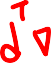 dᵀ∇